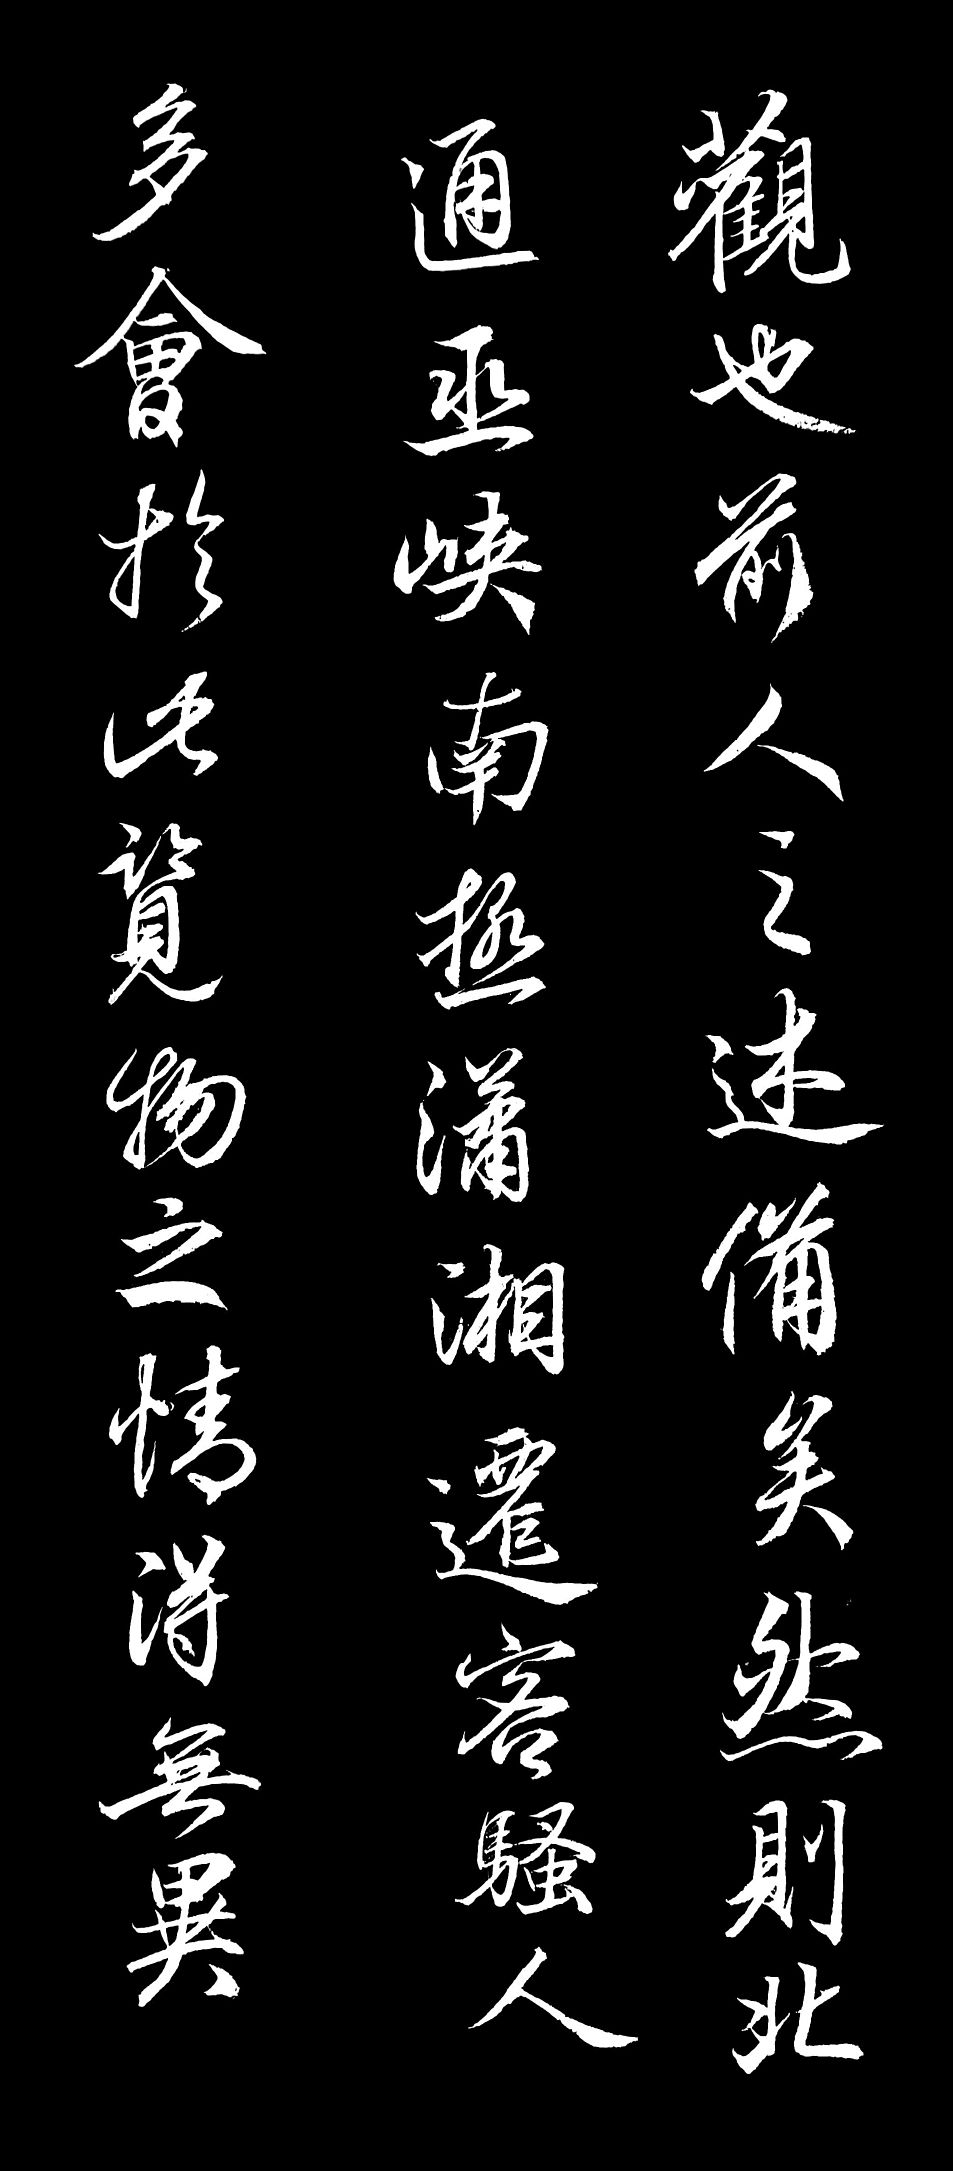 觀也前人之述備矣然則北
通巫峽南極瀟湘遷客騷人
多會於此覽物之情得無異